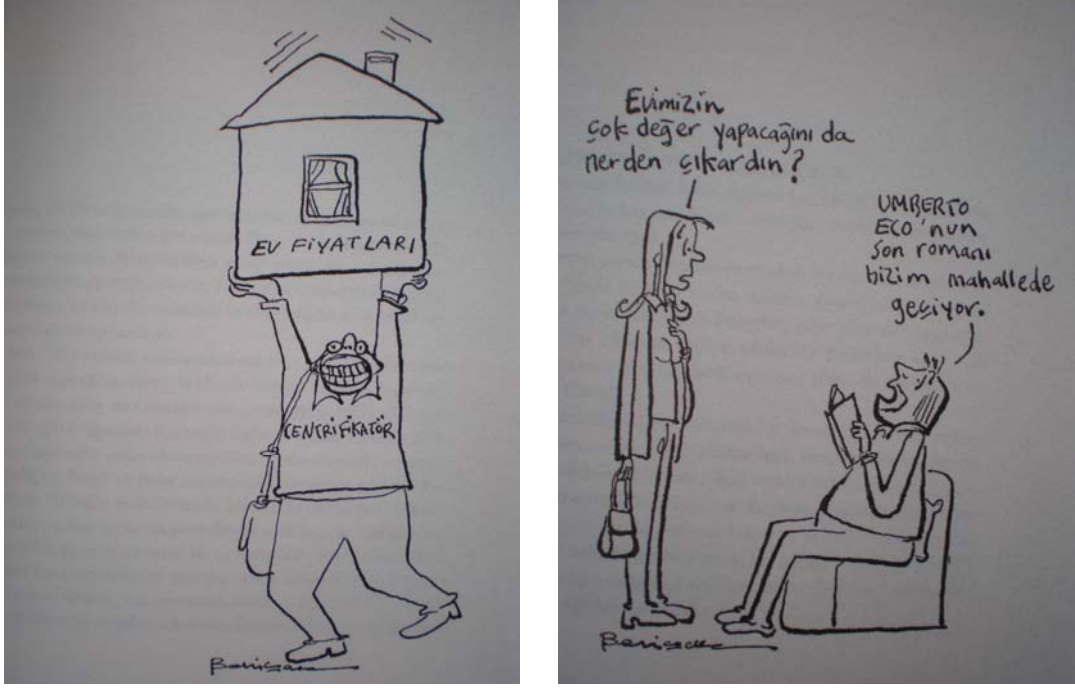 EV FİYATLARI
CENTRİFİKATÖR
Evimizin
çok değer yapacağını da
nerden çıkardın?
UMBERTO
ECO'nun
son romanı
bizim mahallede
geçiyor.